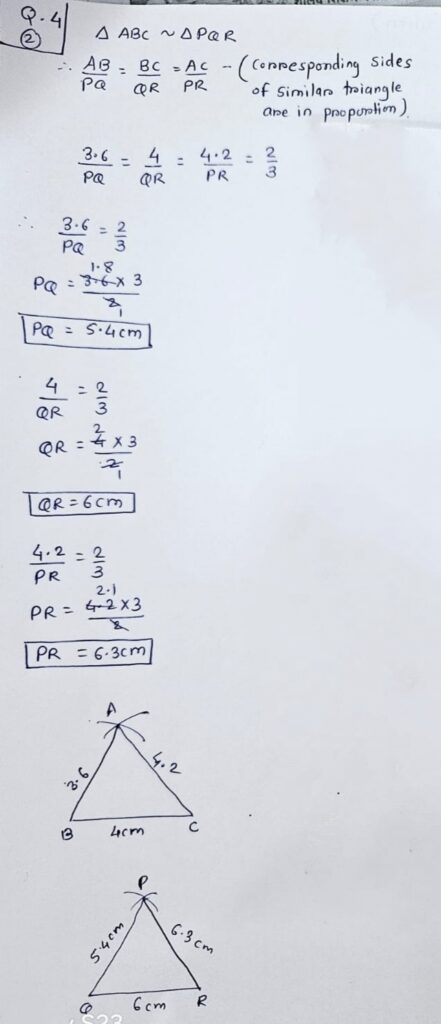 Q.4
②
Δ ABC ~ Δ PQR
∴ AB/PQ = BC/QR = AC/PR - (corresponding sides
of similar triangle
are in proportion)
3.6/PQ = 4/QR = 4.2/PR = 2/3
∴ 3.6/PQ = 2/3
1.8
PQ = 3.6 x 3 / 2 1
PQ = 5.4cm
4/QR = 2/3
2
QR = 4 x 3 / 2 1
QR = 6cm
4.2/PR = 2/3
2.1
PR = 4.2 x 3 / 2
PR = 6.3cm
A
3.6 4.2
B 4cm C
P
5.4cm 6.3cm
Q 6cm R